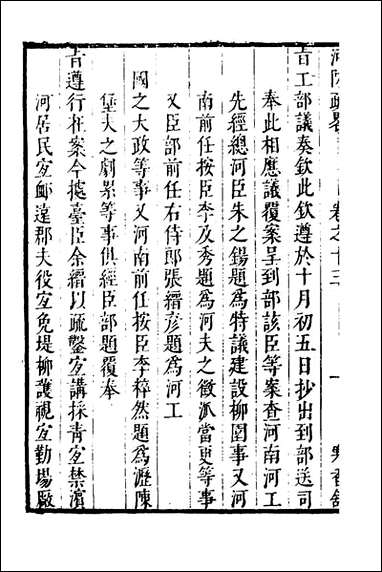 河防疏畧　卷之十三
旨工部議奏欽此欽遵於十月初五日抄出到部送司
奉此相應議覆案呈到部該臣等案查河南河工
先經總河臣朱之錫題為特議建設柳園事又河
南前任按臣李及秀題為河夫之徵派當更等事
又臣部前任右侍郎張縉彥題為河工
國之大政等事又河南前任按臣李粹然題為瀝陳
堡夫之劇累等事俱經臣部題覆奉
旨遵行在案今據臺臣余縉以疏鑿宜講採青宜禁濱
河居民宜䘏遠郡夫役宜免堤柳護視宜勤場廠